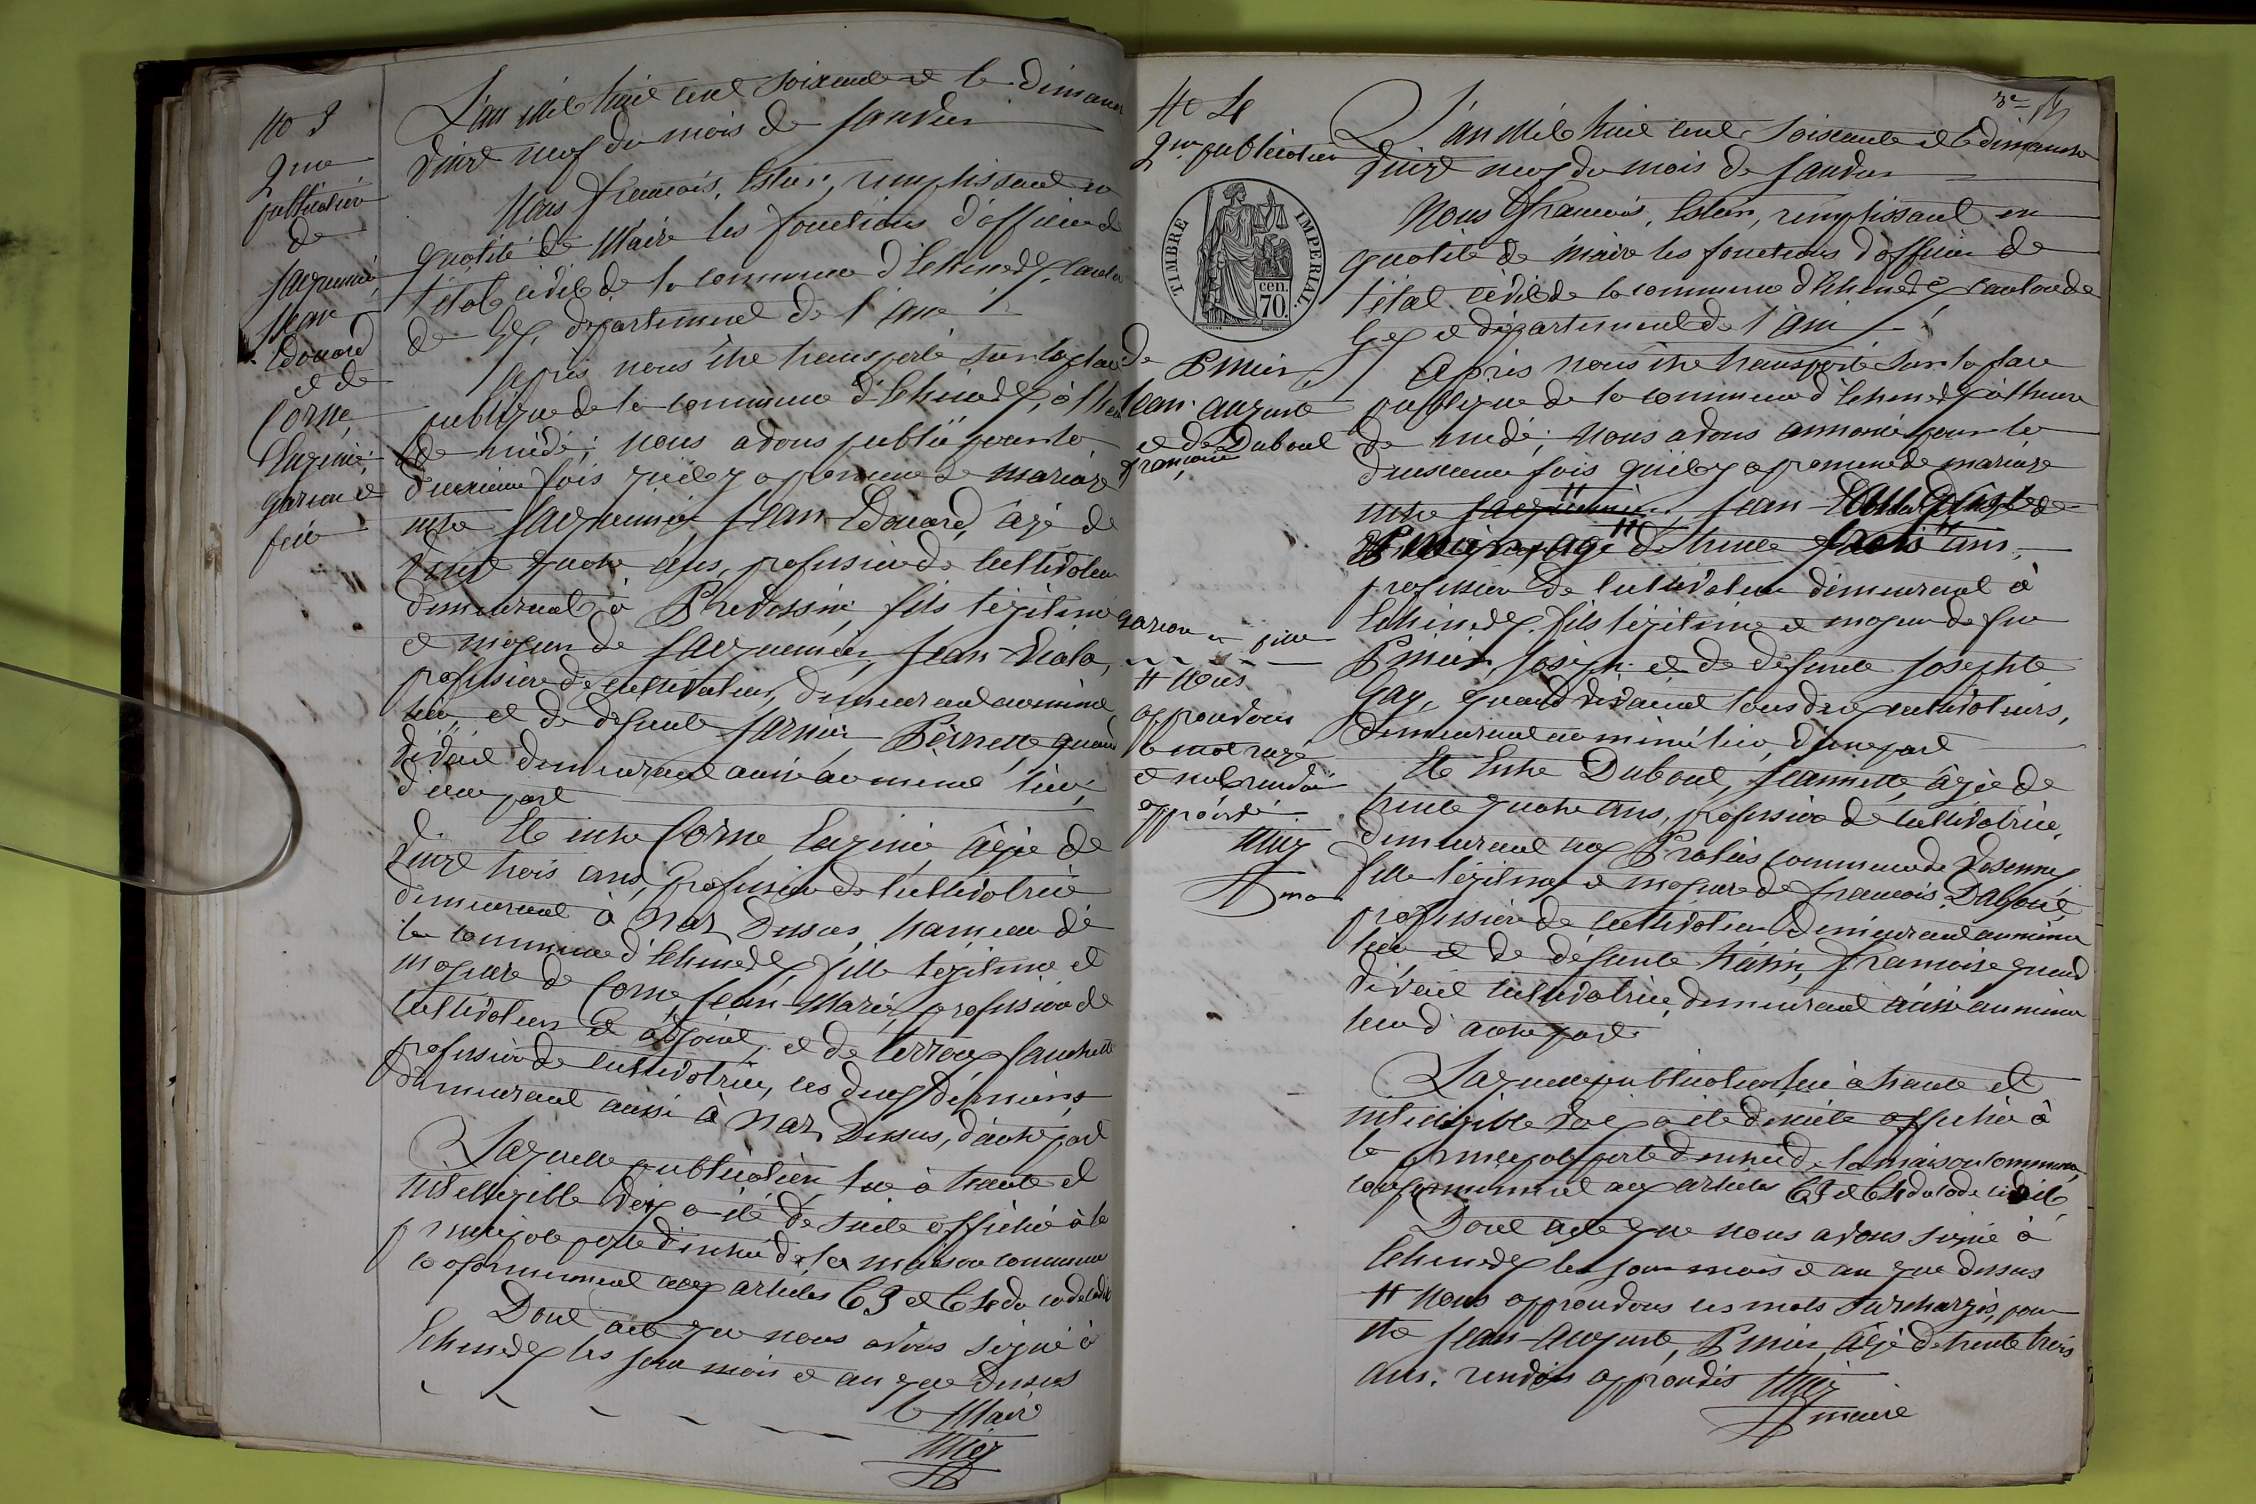 No 3
2me
publication
de
Jacquinier
Jean
Edouard
et de
Corne
Eugénie
garcon et
fille
L'an mil huit cent soixante et le dimanche
vingt neuf du mois de Janvier
Nous François, Estier, remplissant en
qualité de Maire les fonctions d'officier de
l'état civil de la commune d'Echenevex, canton
de Gex, département de l'Ain
Après nous être transporté sur la place
publique de la commune d'Echenevex, à l'heure
de midi; nous avons publié pour la
deuxième fois qu'il y a promesse de mariage
entre Jacquinier, Jean Edouard, âgé de
vingt quatre ans, profession de cultivateur
demeurant à Prévessin, fils légitime
et majeur de Jacquinier, Jean
profession de cultivateur, demeurant au même
lieu, et de défunte Pernette quand
vivait demeurant aussi au même lieu,
d'une part
Et entre Corne Eugénie âgée de
vingt trois ans, profession de cultivatrice
demeurant à Naz Dessus, hameau de
la commune d'Echenevex, fille légitime et
majeure de Corne, Jean-Marie, profession de
cultivateur et adjoint, et de
profession de cultivatrice, les deux derniers
demeurant aussi à Naz Dessus, d'autre part
Laquelle publication lue à haute et
intelligible voix a été de suite affichée à la
principale porte d'entrée de la maison commune
conformément aux articles 63 et 64 du code civil
Dont acte que nous avons signé à
Echenevex les jour mois et an que dessus
le Maire
No 4
2me publication
TIMBRE IMPERIAL.
cen.
70.
de Prmier
Jean-auguste
et de Duboul
françoise
garcon et fille
# Nous
approuvons
le mot rayé
et nul rendu
approuvé
3e
L'an Mil huit cent soixante et le dimanche
vingt neuf du mois de Janvier
Nous François, Estier, remplissant en
qualité de maire les fonctions d'officier de
l'état civil de la commune d'Echenevex canton de
Gex et département de l'Ain
Après nous être transporté sur la place
publique de la commune d'Echenevex à l'heure
de midi; Nous avons annoncé pour la
deuxième fois qu'il y a promesse de mariage
entre Jacquinier Jean-Auguste
Prmier, agé de trente trois ans,
profession de cultivateur demeurant à
Echenevex, fils légitime et majeur de feu
Prmier, Joseph et de défunte Josephte
Gay, quand vivaient tous deux cultivateurs,
demeurant au même lieu, d'une part
Et Entre Duboul, Jeannette, âgée de
trente quatre ans, profession de cultivatrice,
demeurant aux commune de
fille légitime et majeure de François, Duboul,
profession de cultivateur demeurant au même
lieu et de défunte françoise quand
vivait cultivatrice, demeurant aussi au même
lieu d'autre part
Laquelle publication lue à haute et
intelligible voix a été de suite affichée à
la principale porte d'entrée de la maison commune,
conformément aux articles 63 et 64 du code civil,
Dont acte que nous avons signé à
Echenevex les jour mois et an que dessus
# Nous approuvons les mots surchargés, pour
Jean-Auguste, Prmier, âgé de trente trois
ans. rendus approuvés
maire